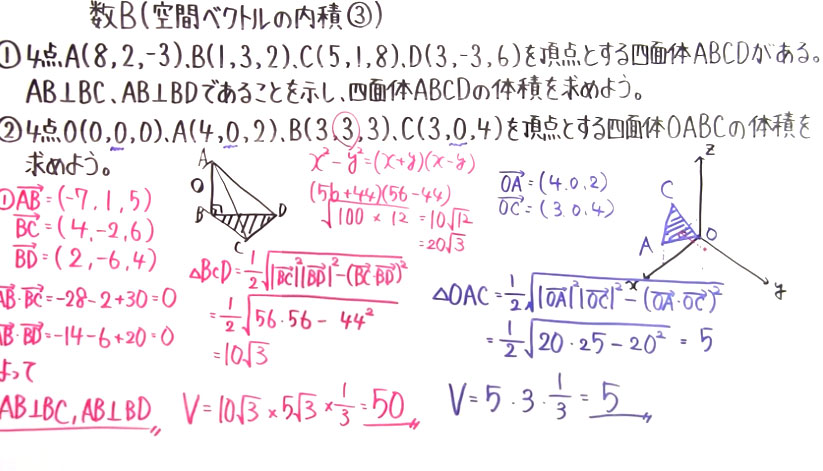 数B(空間ベクトルの内積③)
① 4点A(8,2,-3).B(1,3,2).C(5,1,8).D(3,-3,6)を頂点とする四面体ABCDがある。
AB⊥BC、AB⊥BDであることを示し、四面体ABCDの体積を求めよう。
② 4点O(0,0,0).A(4,0,2).B(3,3,3).C(3,0,4)を頂点とする四面体OABCの体積を
求めよう。
① AB=(-7,1,5)
BC=(4,-2,6)
BD=(2,-6,4)
AB・BC=-28-2+30=0
AB・BD=-14-6+20=0
よって
AB⊥BC, AB⊥BD
A
O
B
D
C
x²-y²=(x+y)(x-y)
(56+44)(56-44)
√100×12=10√12
=20√3
△BCD=1/2√|BC|²|BD|²-(BC・BD)²
=1/2√56・56-44²
=10√3
V=10√3×5√3×1/3=50
OA=(4.0.2)
OC=(3.0.4)
z
C
A
O
x
y
△OAC=1/2√|OA|²|OC|²-(OA・OC)²
=1/2√20・25-20²=5
V=5・3・1/3=5